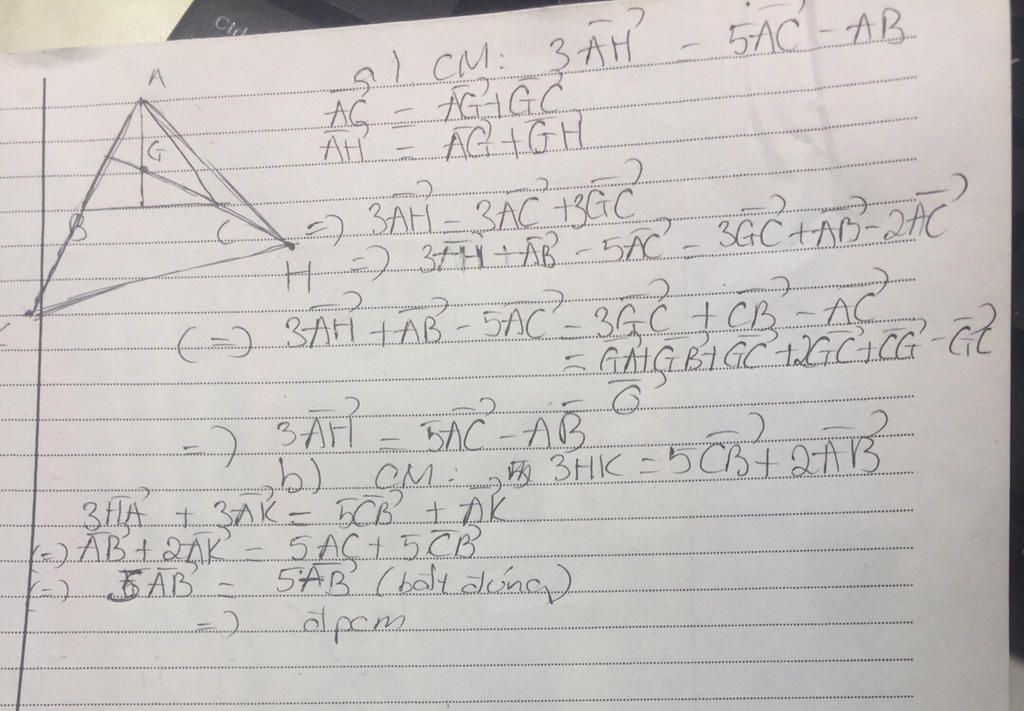 Ctrl
A
G
B
C
H
a) CM: 3AH⃗ = 5AC⃗ - AB
AC⃗ = AG⃗ + GC⃗
AH⃗ = AG⃗ + GH⃗
=) 3AH⃗ = 3AC⃗ + 3GC⃗
=) 3AH⃗ + AB⃗ - 5AC⃗ = 3GC⃗ + AB⃗ - 2AC⃗
(=) 3AH⃗ + AB⃗ - 5AC⃗ = 3GC⃗ + CB⃗ - AC⃗
= GA⃗ + GB⃗ + GC⃗ + 2GC⃗ + CG⃗ - GC⃗
0⃗
=) 3AH⃗ = 5AC⃗ - AB⃗
b) CM: 3HK = 5CB⃗ + 2AB⃗
3HA⃗ + 3AK⃗ = 5CB⃗ + AK⃗
(=) AB⃗ + 2AK⃗ = 5AC⃗ + 5CB⃗
(=) 5AB⃗ = 5AB⃗ (bđt đúng)
=) đpcm